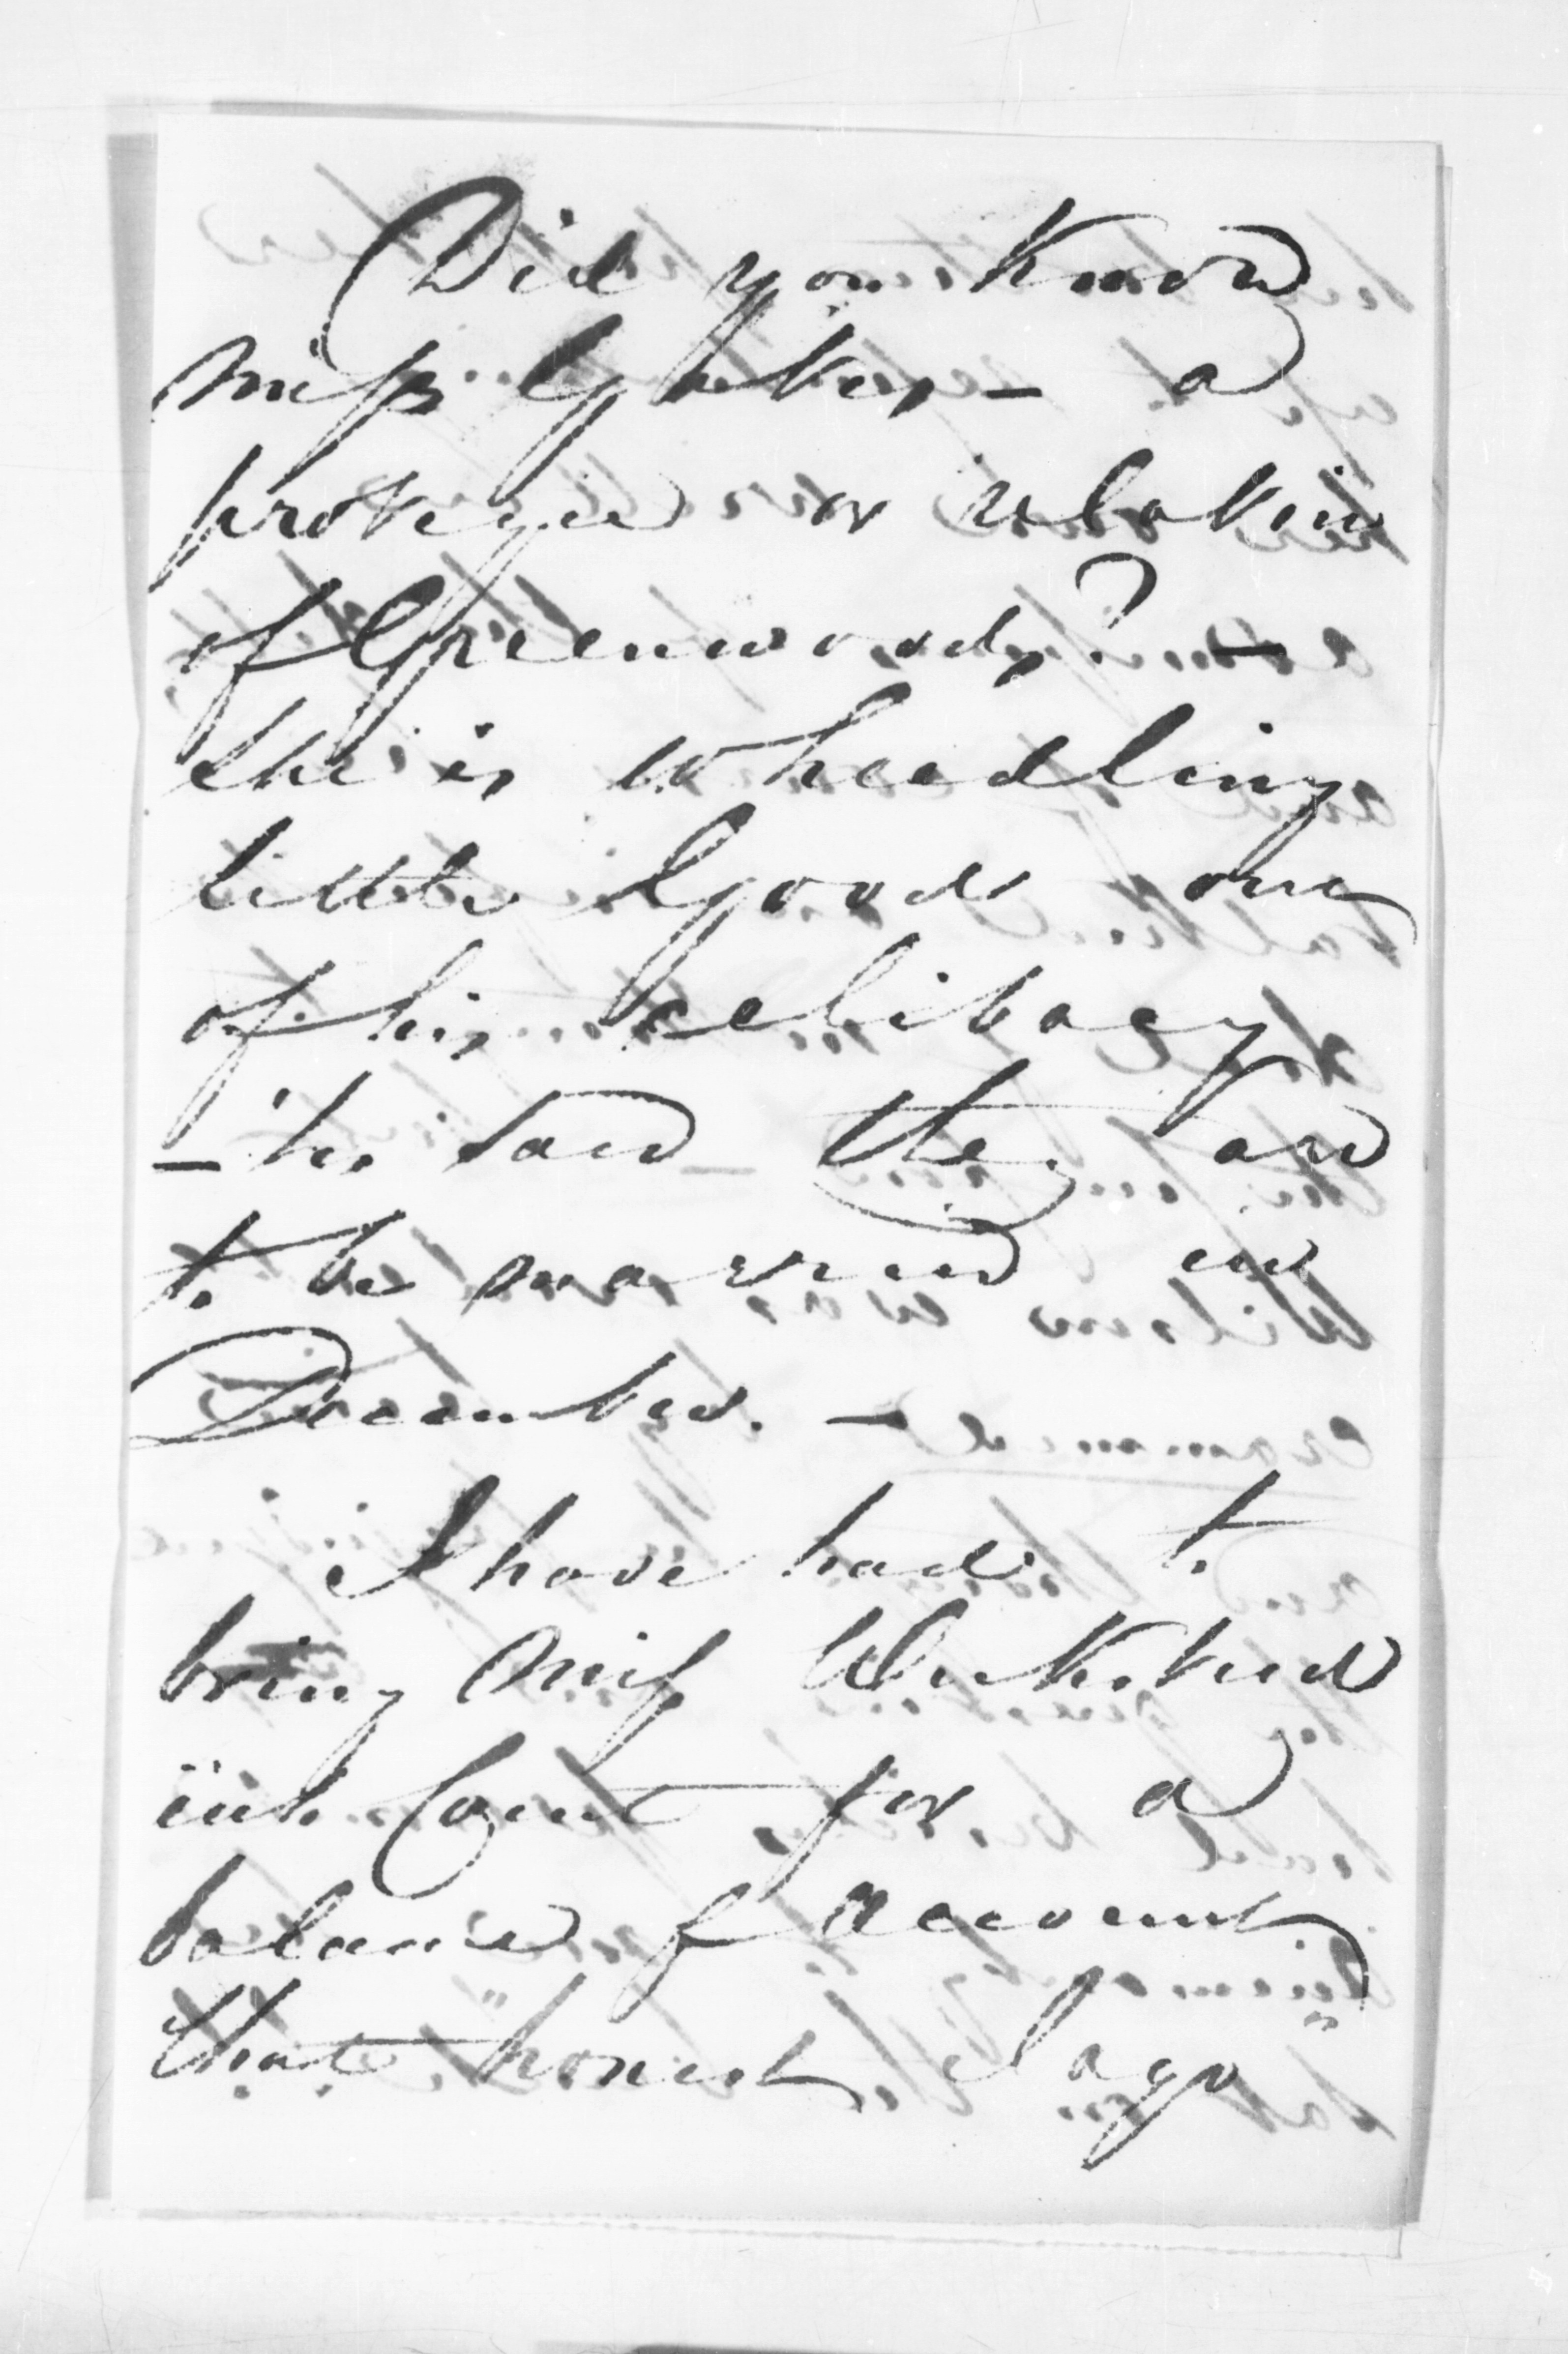 Did you know
Miss Yates – a
protegee or relation
of Greenwoods? –
she is wheedling
little Good out
of his celibacy
– 'tis said they are
to be married in
December. –
I have had to
bring Miss
into Court for a
balance of account
that "honest Iago"